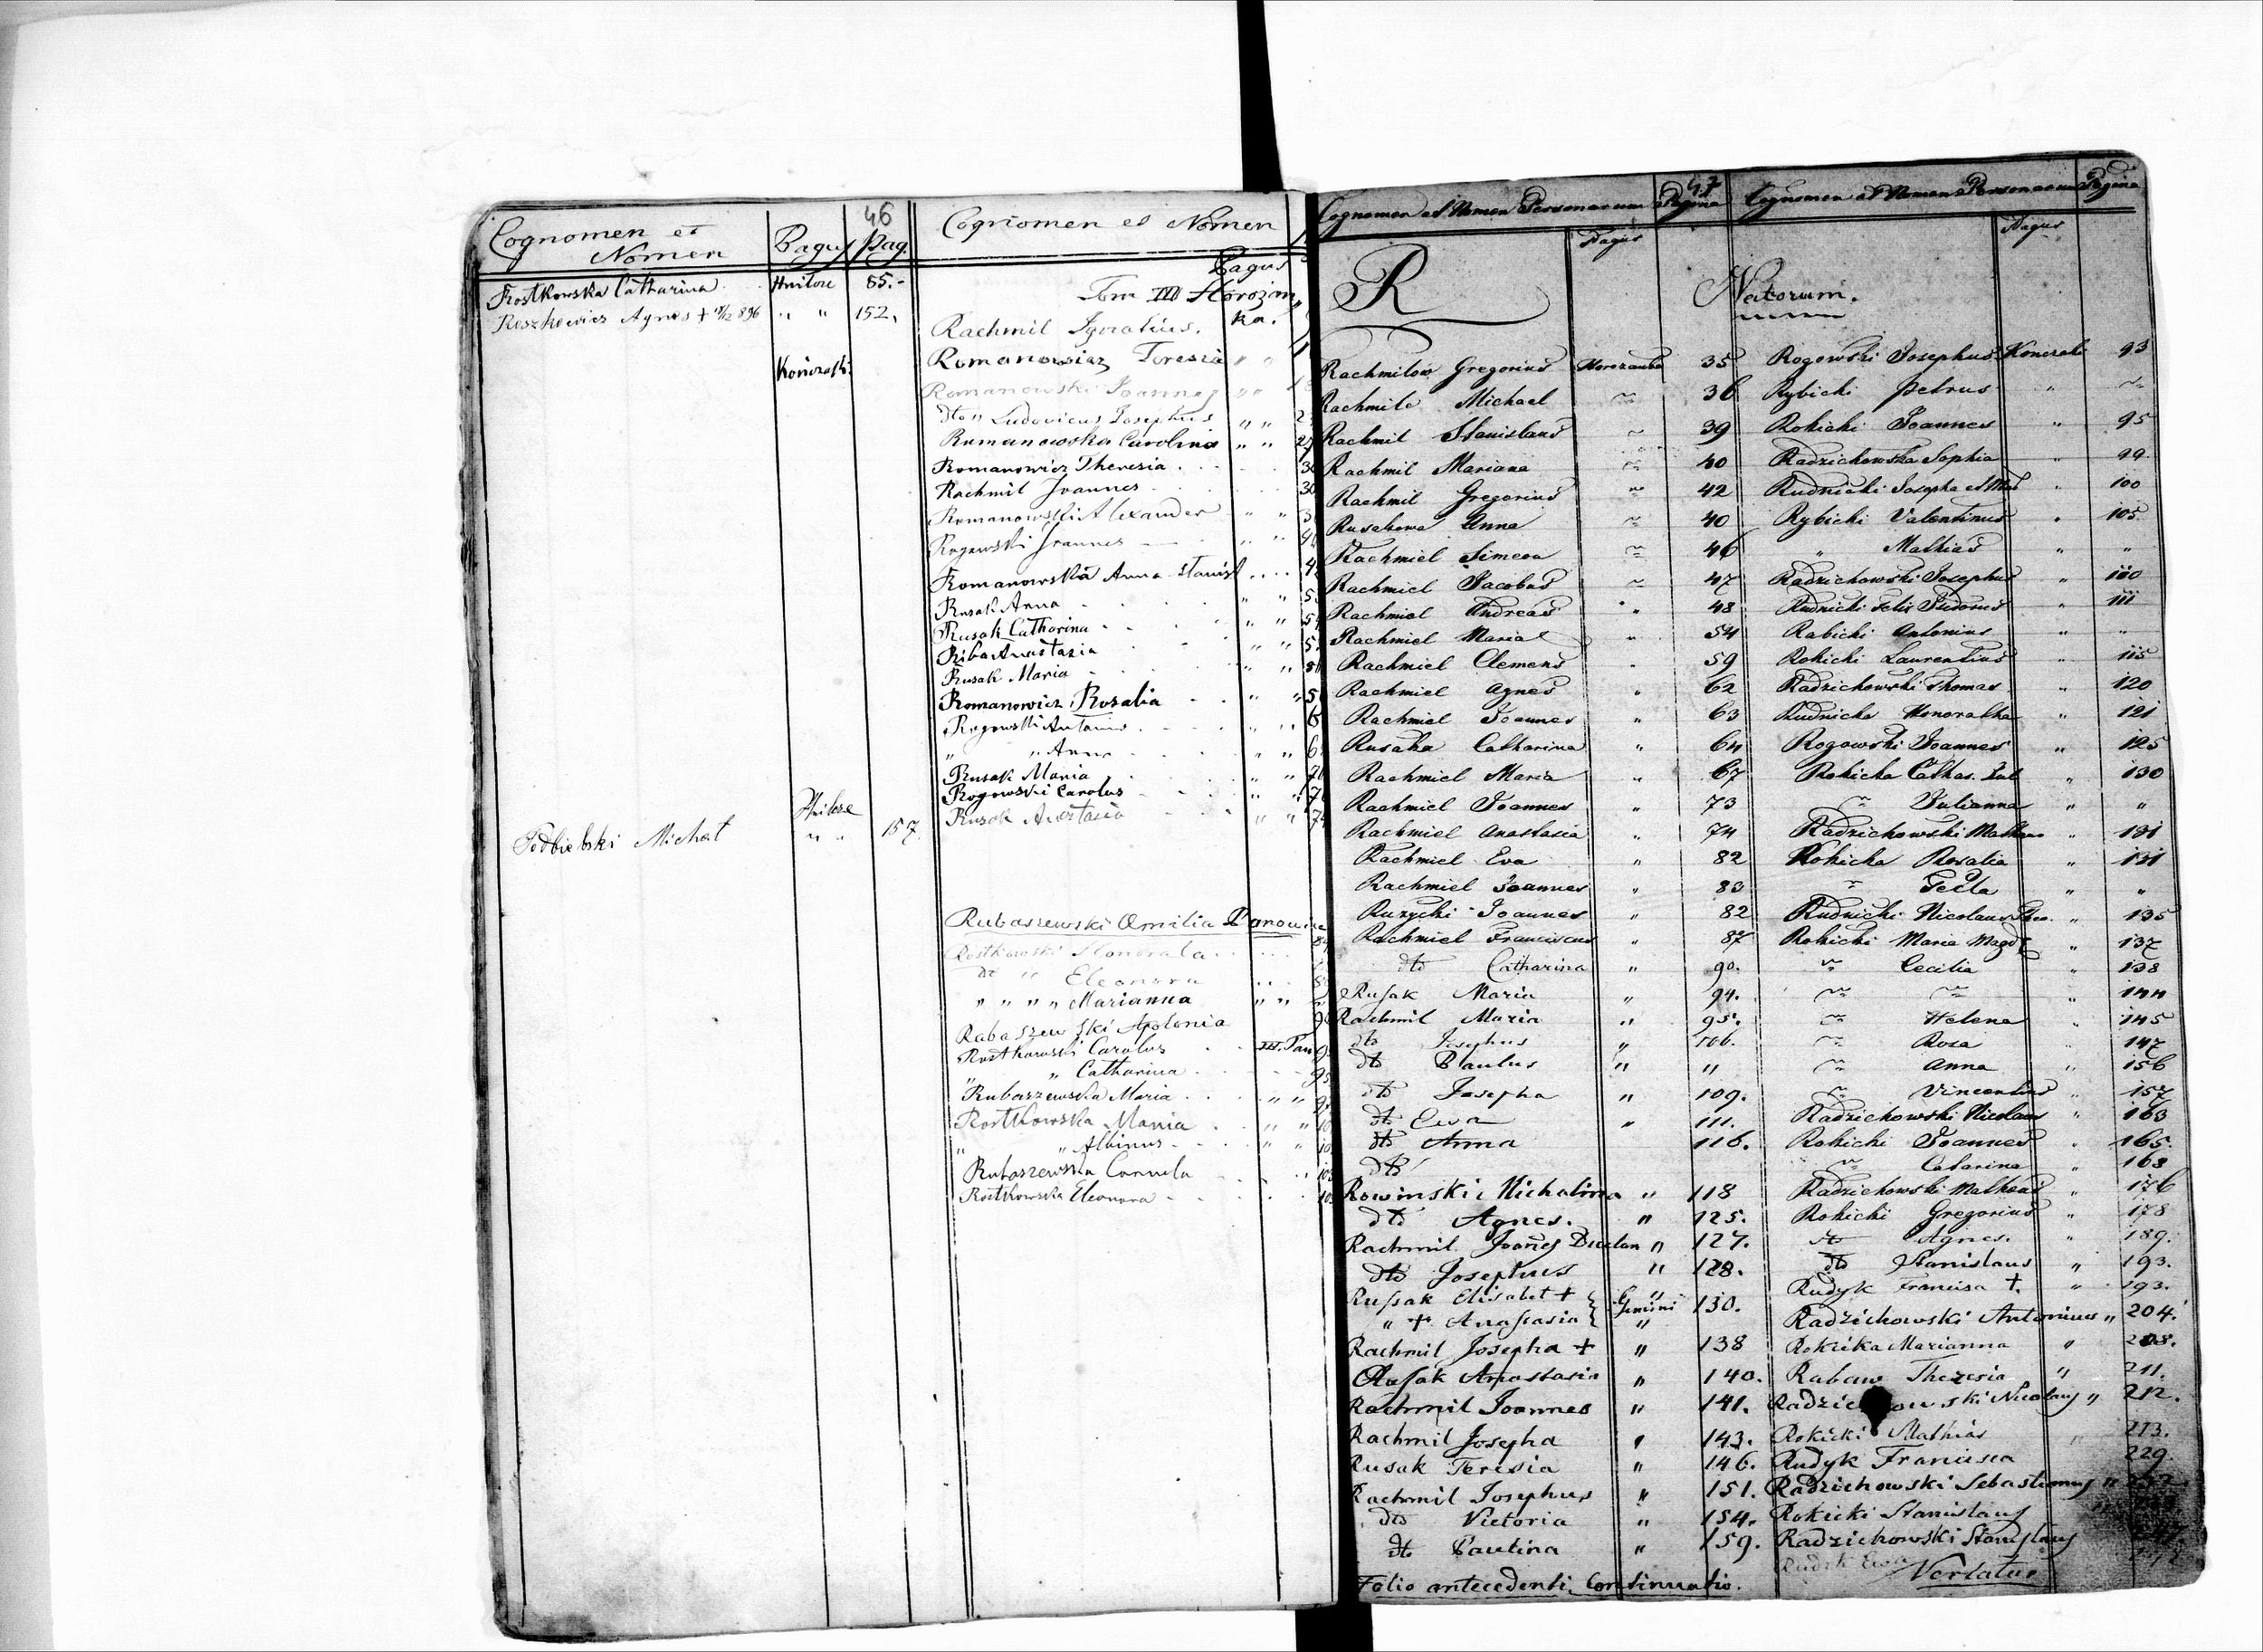 46
Cognomen et Nomen Pagus Pag.
Rostkowska Catharina Hnilcze 85.-
Roszkewicz Agnes + 896 " " 152.
Koniuszki
Hnilcze
Podbielski Michał " " 157.
Cognomen et Nomen
Pagus
Tom III Horożanka.
Rachmil Ignatius.
Romanowicz Teresia " "
Romanowski Joannes " "
dto " Ludovicus Josephus " "
Rumanowska Carolina " "
Romanowicz Theresia
Rachmil Joannes
Romanowski Alexander " "
Rogowski Joannes " "
Romanowska Anna
Rusak Anna " "
Rusak Catharina " "
Riba Anastasia " "
Rusak Maria " "
Romanowicz Rosalia " "
Rogowski Antonius " "
" " Anna " "
Rusak Maria " "
Rogowski Carolus " "
Rusak Anastasia " "
Rubaszewski Emilia
Rostkowski Honorata
dt " Eleonora
" " " " Marianna " "
Rabaszewski Apolonia
Rostkowski Carolus
" " Catharina
Rubaszewska Maria " "
Rostkowska Maria " "
" " Albinus " "
Rubaszewska
Rostkowska Eleonora
47
Cognomen et Nomen Personarum Pagina
Pagus
R
Rachmilow Gregorius Horozanka 35
Rachmile Michael ~ 36
Rachmil Stanislaus ~ 39
Rachmil Mariana ~ 40
Rachmil Gregorius ~ 42
Rusakowa Anna ~ 40
Rachmiel Simeon ~ 46
Rachmiel Jacobus ~ 47
Rachmiel Andreas " 48
Rachmiel Maria " 54
Rachmiel Clemens " 59
Rachmiel Agnes " 62
Rachmiel Joannes " 63
Rusaka Catharina " 64
Rachmiel Maria " 67
Rachmiel Joannes " 73
Rachmiel Anastasia " 74
Rachmiel Eva " 82
Rachmiel Joannes " 83
Ruzycki Joannes " 82
Rachmiel Franciscus " 87
dto Catharina " 90.
Rusak Maria " 94.
Rachmil Maria " 95.
dto Josephus " 106.
dto Paulus " "
dto Josepha " 109.
dto Ewa " 111.
dto Anna 116.
dto
Rowinski Michalina " 118
dto Agnes. " 125.
Rachmil Joannes " 127.
dto Josephus " 128.
Russak Elisabet + " Gemini 130.
" + Anastasia "
Rachmil Josepha + " 138
Rusak Anastasia " 140.
Rachmil Joannes " 141.
Rachmil Josepha " 143.
Rusak Teresia " 146.
Rachmil Josephus " 151.
dto Victoria " 154.
dto Paulina " 159.
Folio antecedenti Continuatio.
Cognomen et Nomen Personarum Pagina
Pagus
Natorum.
Rogowski Josephus 93
Rybicki Petrus " ~
Rokicki Joannes " 95
Radzichowska Sophia " 99.
Rudnicki Josepha 100
Rybicki Valentinus " 105
" Mathias " "
Radzichowski Josephus " 110
Rudnicki Felix Isidorus " 111
Rabicki Antonius " "
Rokicki Laurentius " 115
Radzichowski Thomas " 120
Rudnicka Honoratha " 121
Rogowski Joannes " 125
Rokicka Cathar. Jul " 130
~ Julianna " "
Radzichowski " 131
Rokicka Rosalia " 131
~ Tecla " "
Rudnicki Nicolaus " 135
Rokicki Maria Magd " 137
~ Cecilia " 138
~ ~ " 144
~ Helena " 145
~ Rosa " 147
~ Anna " 156
~ Vincentius " 157
Radzichowski Nicolaus " 163
Rokicki Joannes " 165.
~ Catarina " 168
Radzichowski Matheus " 176
Rokicki Gregorius " 178
dto Agnes. " 189.
dto Stanislaus " 193.
Rudyk Francisa +. " 193.
Radzichowski Antonius " 204.
Rokicka Marianna " 208.
Rabaw Theresia " 211.
Radzichowski Nicolaus " 212.
Rokicki Mathias " 213.
Rudyk Francisca 229.
Radzichowski Sebastianus "
Rokicki Stanislaus
Radzichowski Stanislaus
Rudyk Ewa
Vertatur